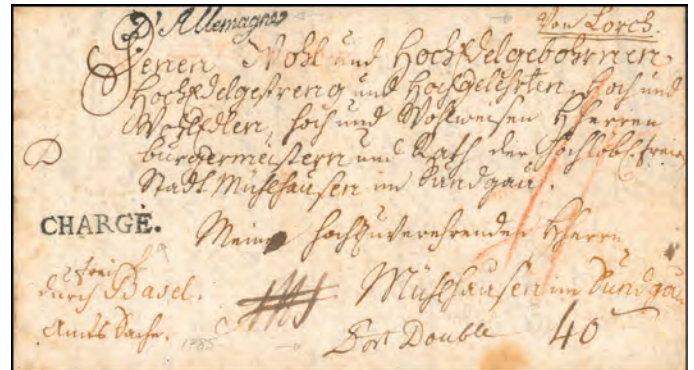 D'Allemagne
Von Lorch.
Denen Wohl und HochEdelgebohrnen
HochEdelgestreng und Hochgelehrten, Hoch und
WohlEdlen, hoch und Wohlweisen Herren
bürgermeistern und Rath der Hochlöbl. freien
Stadt Mühlhausen im Sundgau.
CHARGÉ.
Meine hochzuverehrenden Herrn
durch Basel.
Mühlhausen im Sundgau
Amts Sache.
1785
Port Double 40